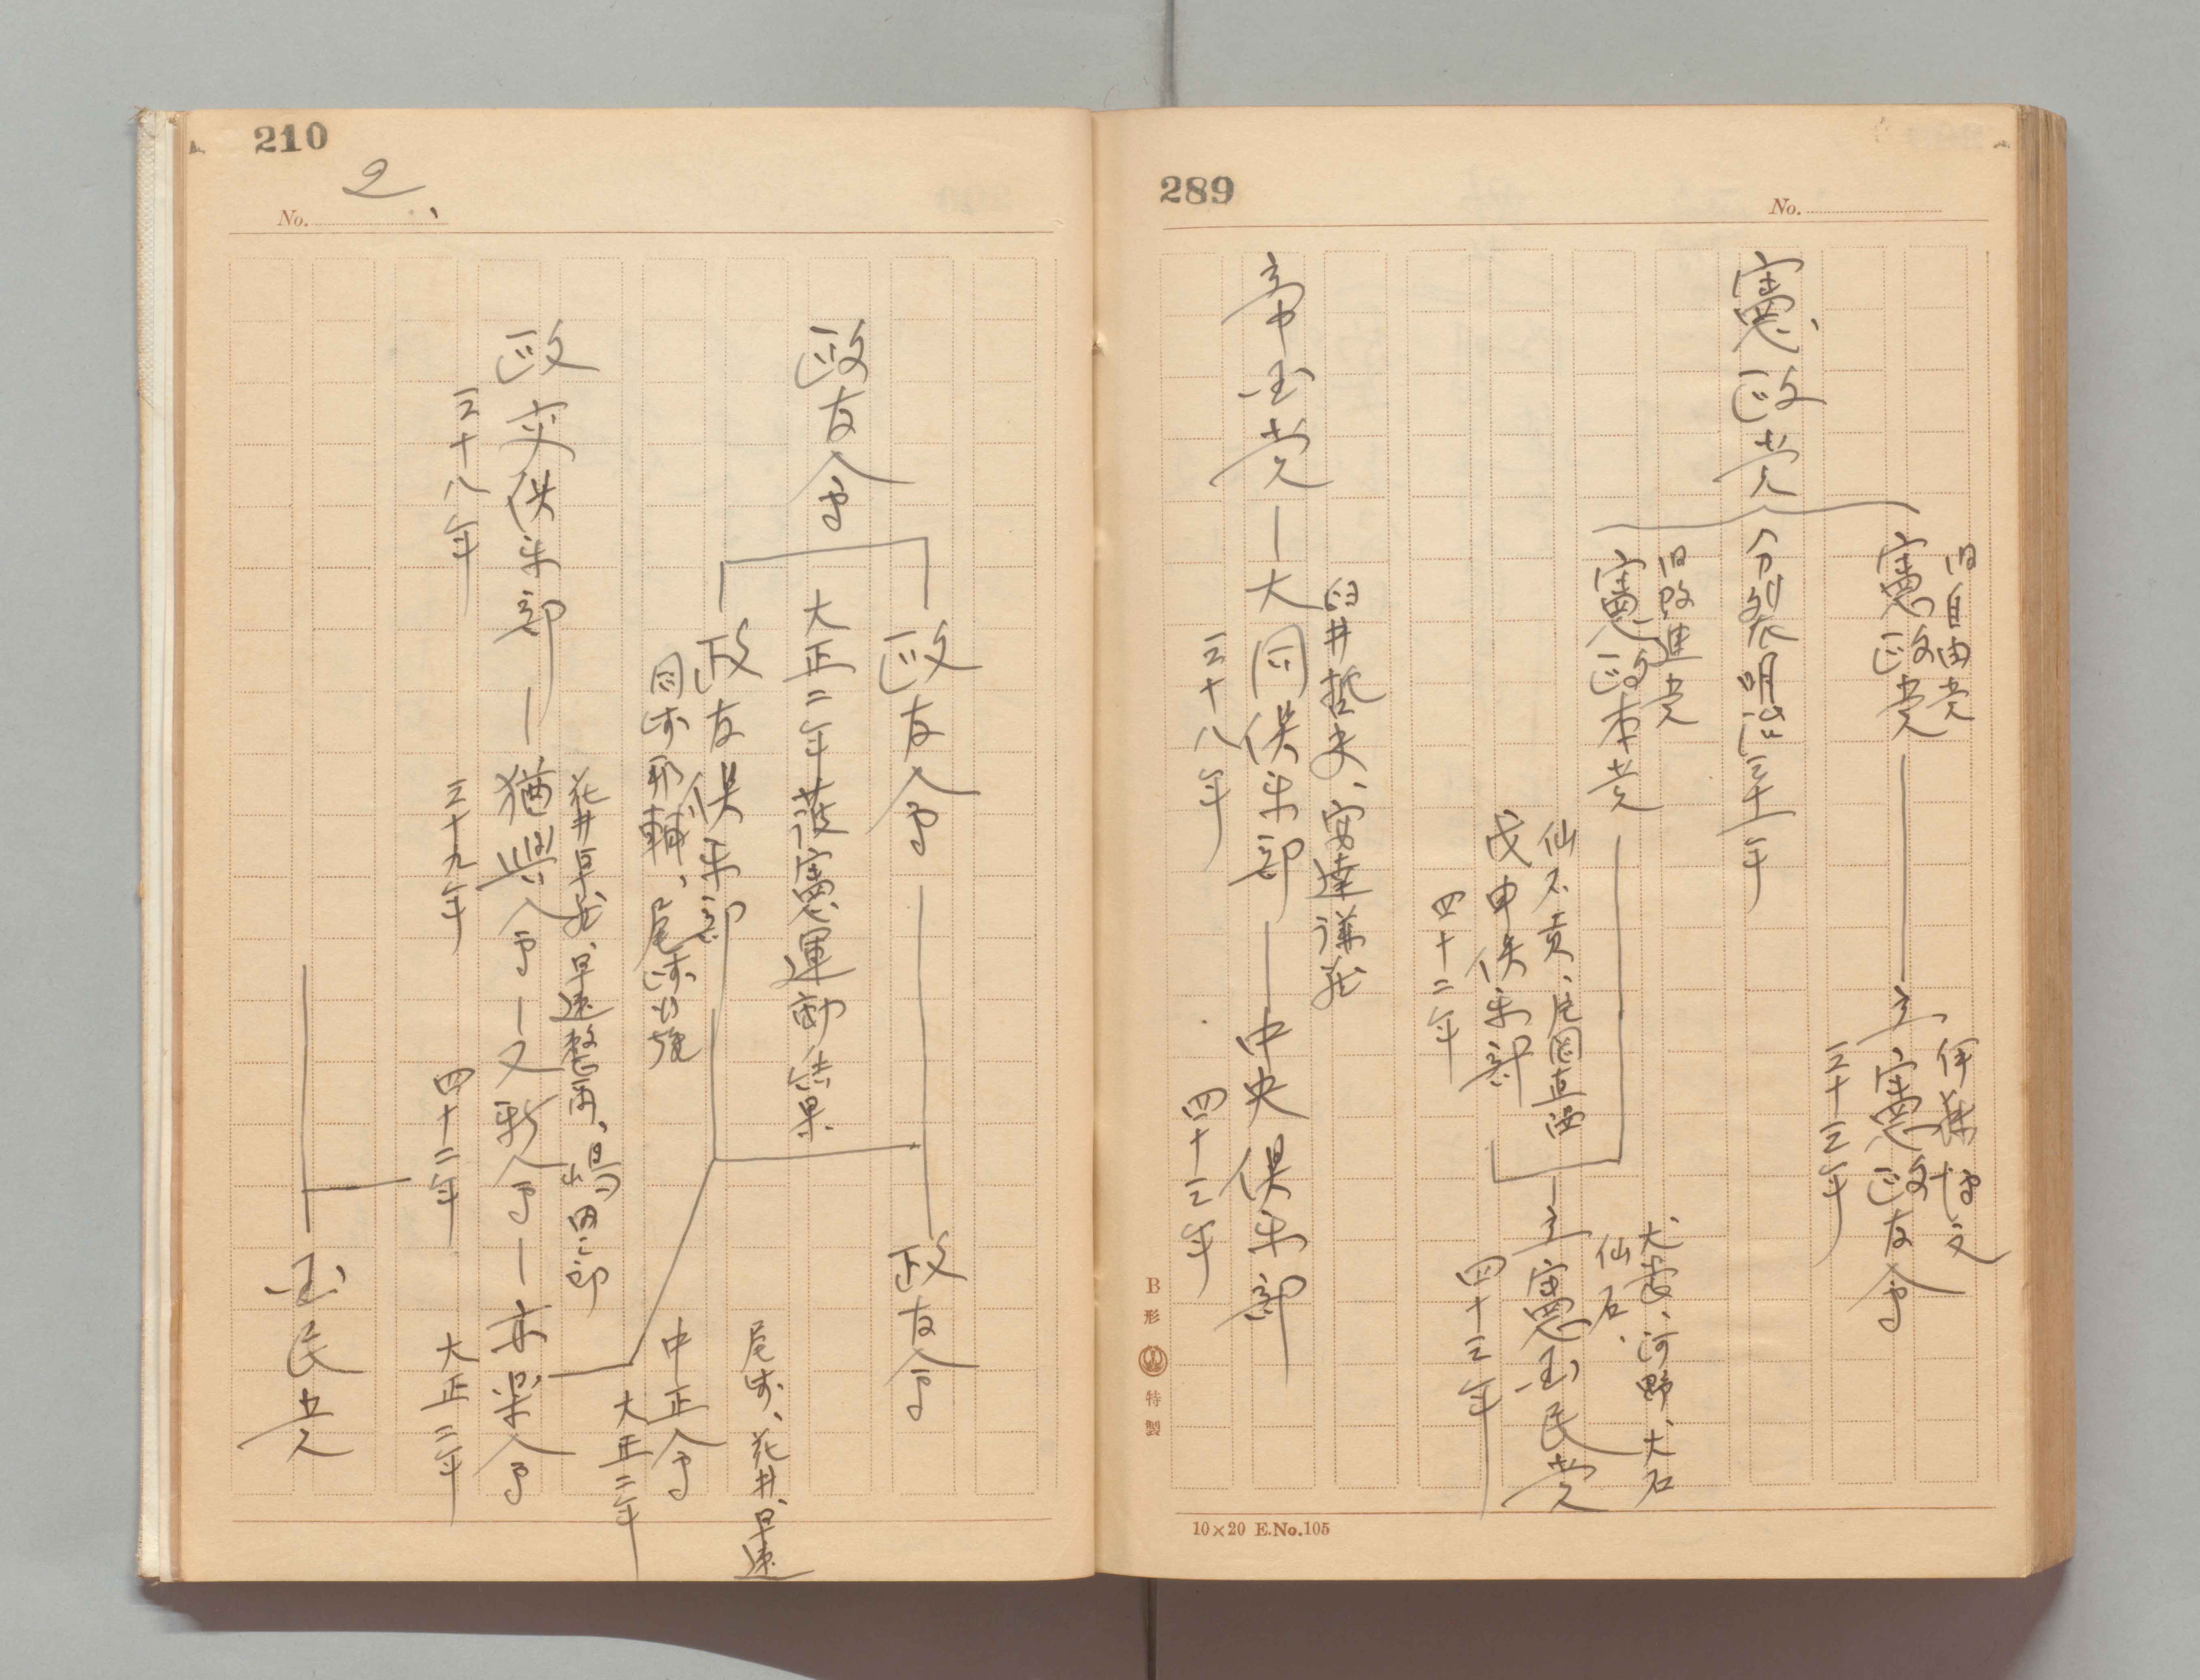 289
No.
憲政党
旧自由党
憲政党
伊藤博文
立憲政友会
三十三年
分裂明治三十一年
旧改進党
憲政本党
仙石貢、片岡直温
戊申倶楽部
四十二年
大養、河野、大石
仙石、
立憲国民党
四十三年
臼井哲夫、安達謙蔵
帝国党ー大同倶楽部ー中央倶楽部
三十八年
四十三年
B形 特製
10×20 E.No.105
210
2、
No.
政友会
政友会
政友会
大正二年護憲運動結果
政友倶楽部
岡崎邦輔、尾崎行雄
尾崎、花井、早速
中正会
大正二年
花井卓蔵、早速整爾、嶋田三郎
政交倶楽部ー猶興会ー又新会ー亦楽会
三十八年
三十九年
四十二年
大正二年
国民党